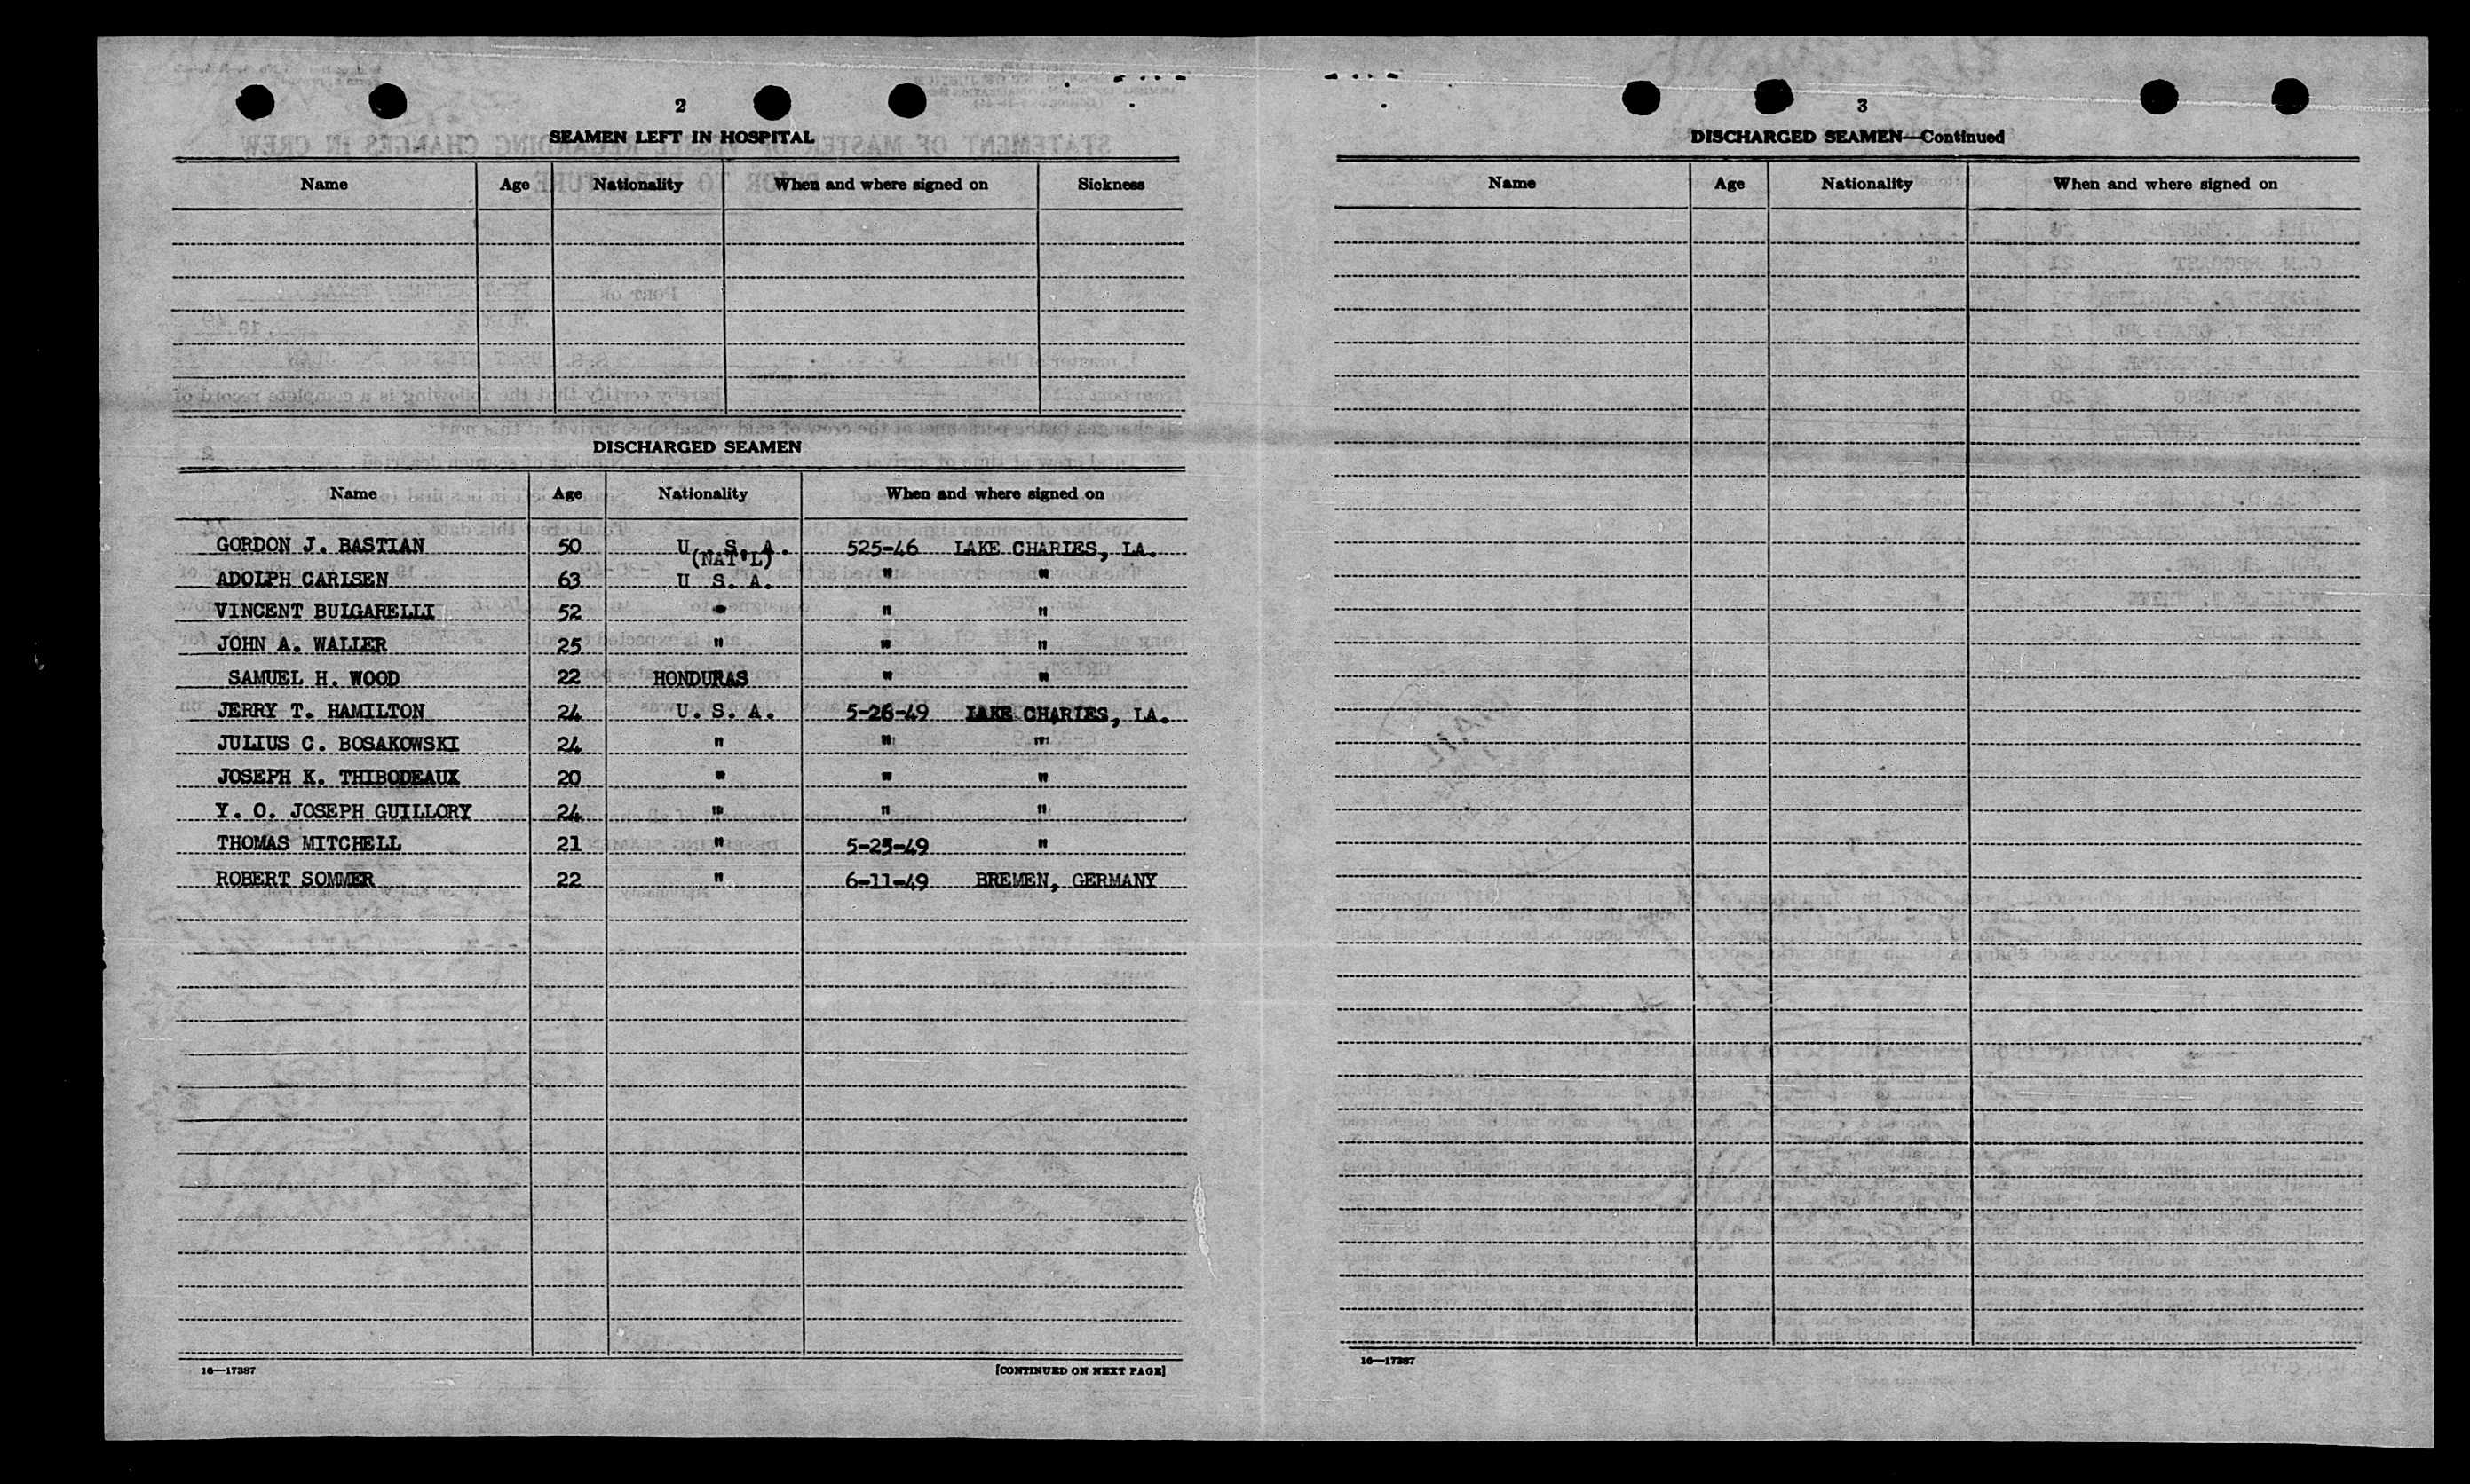 2
SEAMEN LEFT IN HOSPITAL
Name Age Nationality When and where signed on Sickness
DISCHARGED SEAMEN
Name Age Nationality When and where signed on
GORDON J. BASTIAN 50 U. S. A. 525-46 LAKE CHARLES, LA.
(NAT'L)
ADOLPH CARLSEN 63 U S. A. " "
VINCENT BULGARELLI 52 " " "
JOHN A. WALLER 25 " " "
SAMUEL H. WOOD 22 HONDURAS " "
JERRY T. HAMILTON 24 U. S. A. 5-26-49 LAKE CHARLES, LA.
JULIUS C. BOSAKOWSKI 24 " " "
JOSEPH K. THIBODEAUX 20 " " "
Y. O. JOSEPH GUILLORY 24 " " "
THOMAS MITCHELL 21 " 5-25-49 "
ROBERT SOMMER 22 " 6-11-49 BREMEN, GERMANY
16—17387 [CONTINUED ON NEXT PAGE]
3
DISCHARGED SEAMEN—Continued
Name Age Nationality When and where signed on
16—17387